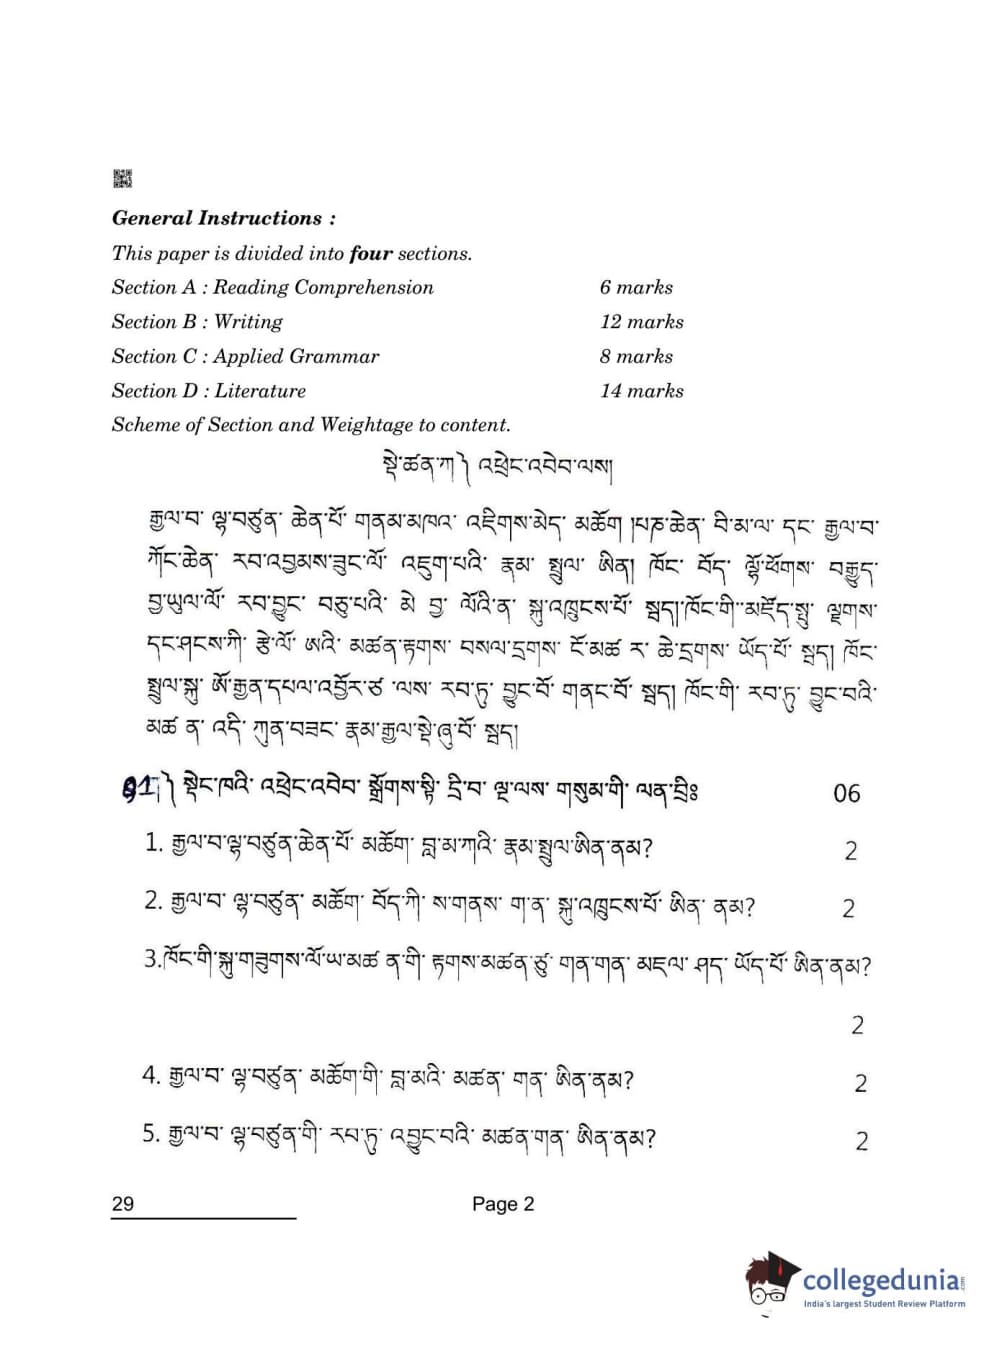 General Instructions :
This paper is divided into four sections.
Section A : Reading Comprehension 6 marks
Section B : Writing 12 marks
Section C : Applied Grammar 8 marks
Section D : Literature 14 marks
Scheme of Section and Weightage to content.
སྡེ་ཚན་ཀ༽ འཕྲེང་འབེབ་ལས།
རྒྱལ་བ་ ལྷ་བཙུན་ ཆེན་པོ་ གནམ་མཁའ་ འཇིགས་མེད་ མཆོག །པཎ་ཆེན་ བི་མ་ལ་ དང་ རྒྱལ་བ་
ཀོང་ཆེན་ རབ་འབྱམས་ཟུང་ལོ་ འཇུག་པའི་ རྣམ་ སྤྲུལ་ ཨིན། ཁོང་ བོད་ ལྷོ་ཕོགས་ བརྒྱུད་
བྱ་ཡུལ་ལོ་ རབ་བྱུང་ བཅུ་པའི་ མེ་ བྱ་ ལོའི་ན་ སྐུ་འཁྲུངས་པོ་ སྦད།ཁོང་གི་་མཛོད་སྤུ་ ལྗགས་
དང་ཤངས་ཀི་ རྩེ་ལོ་ ཨའི་ མཚན་རྟགས་ བསལ་དྲགས་ ངོ་མཚ ར་ ཆེ་དྲགས་ ཡོད་པོ་ སྦད། ཁོང་
སྤྲུལ་སྐུ་ ཨོ་རྒྱན་དཔལ་འབྱོར་ཙ ་ལས་ རབ་ཏུ་ བྱུང་བོ་ གནང་བོ་ སྦད། ཁོང་གི་ རབ་ཏུ་ བྱུང་བའི་
མཚ ན་ འདི་ ཀུན་བཟང་ རྣམ་རྒྱལ་སྡེ་ཞུ་བོ་ སྦད།
Q1།༽ སྡེང་ཁའི་ འཕྲེང་འབེབ་ སྒྲོགས་སྟི་ དྲི་བ་ ལྔ་ལས་ གསུམ་གི་ ལན་བྲིཿ 06
1. རྒྱལ་བ་ལྷ་བཙུན་ཆེན་པོ་ མཆོག་ བླ་མ་ཀའི་ རྣམ་སྤྲུལ་ཨིན་ནམ? 2
2. རྒྱལ་བ་ ལྷ་བཙུན་ མཆོག་ བོད་ཀི་ ས་གནས་ ག་ན་ སྐུ་འཁྲུངས་པོ་ ཨིན་ ནམ? 2
3.ཁོང་གི་སྐུ་གཟུགས་ལོ་ཡ་མཚ ན་གི་ རྟགས་མཚན་ཙུ་ གན་གན་ མཇལ་ ཤད་ ཡོད་པོ་ ཨིན་ནམ?
2
4. རྒྱལ་བ་ ལྷ་བཙུན་ མཆོག་གི་ བླ་མའི་ མཚན་ གན་ ཨིན་ནམ? 2
5. རྒྱལ་བ་ ལྷ་བཙུན་གི་ རབ་ཏུ་ འབྱུང་བའི་ མཚན་གན་ ཨིན་ནམ? 2
29 Page 2
collegedunia.com
India's largest Student Review Platform